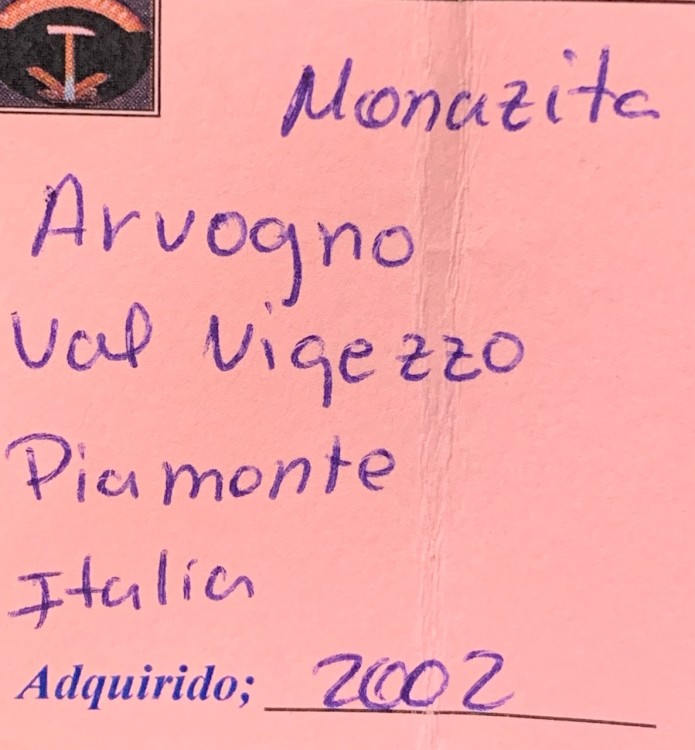 Monazita
Arvogno
Val Vigezzo
Piamonte
Italia
Adquirido; 2002